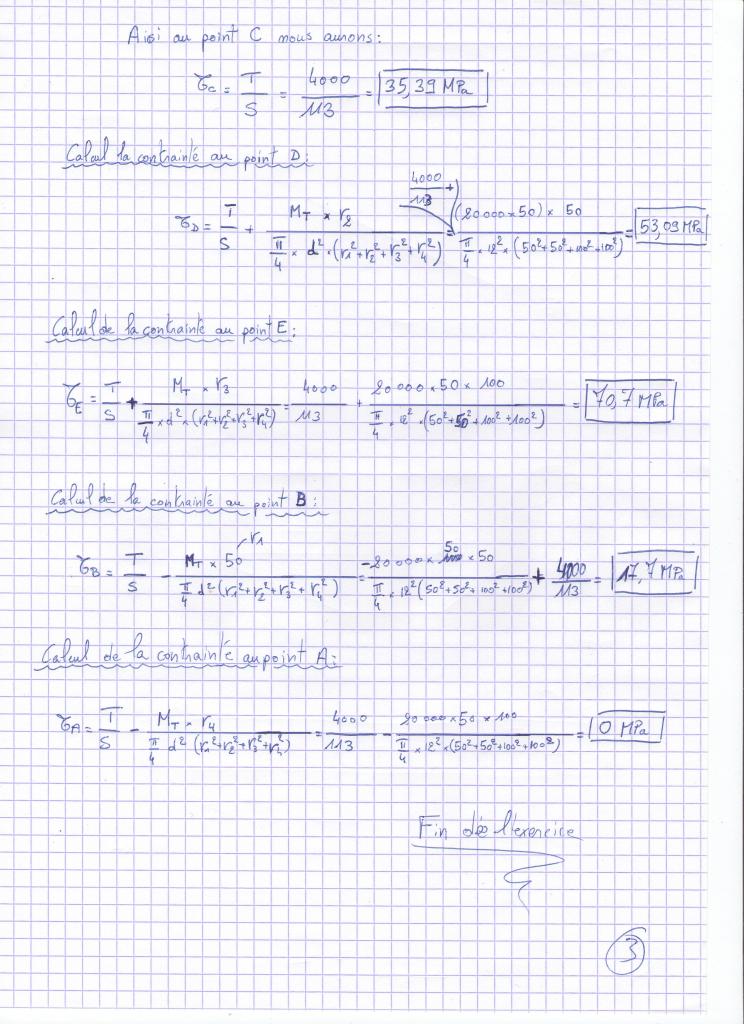 Aisi au point C nous aurons:
τC = T/S = 4000/113 = 35,39 MPa
Calcul la contrainté au point D:
τD = T/S + (MT × r2)/(π/4 × d² × (r1²+r2²+r3²+r4²)) = 4000/113 + ((20000×50) × 50)/(π/4 × 12² × (50²+50²+100²+100²)) = 53,09 MPa
Calcul de la contrainté au point E:
τE = T/S + (MT × r3)/(π/4 × d² × (r1²+r2²+r3²+r4²)) = 4000/113 + (20000 × 50 × 100)/(π/4 × 12² × (50²+50²+100²+100²)) = 70,7 MPa
Calcul de la contrainté au point B:
τB = T/S - (MT × 50 r1)/(π/4 d² (r1²+r2²+r3²+r4²)) = (-20000 × 50 × 50)/(π/4 × 12² (50²+50²+100²+100²)) + 4000/113 = 17,7 MPa
Calcul de la contrainté au point A:
τA = T/S - (MT × r4)/(π/4 d² (r1²+r2²+r3²+r4²)) = 4000/113 - (20000 × 50 × 100)/(π/4 × 12² × (50²+50²+100²+100²)) = 0 MPa
Fin de l'exercice
3